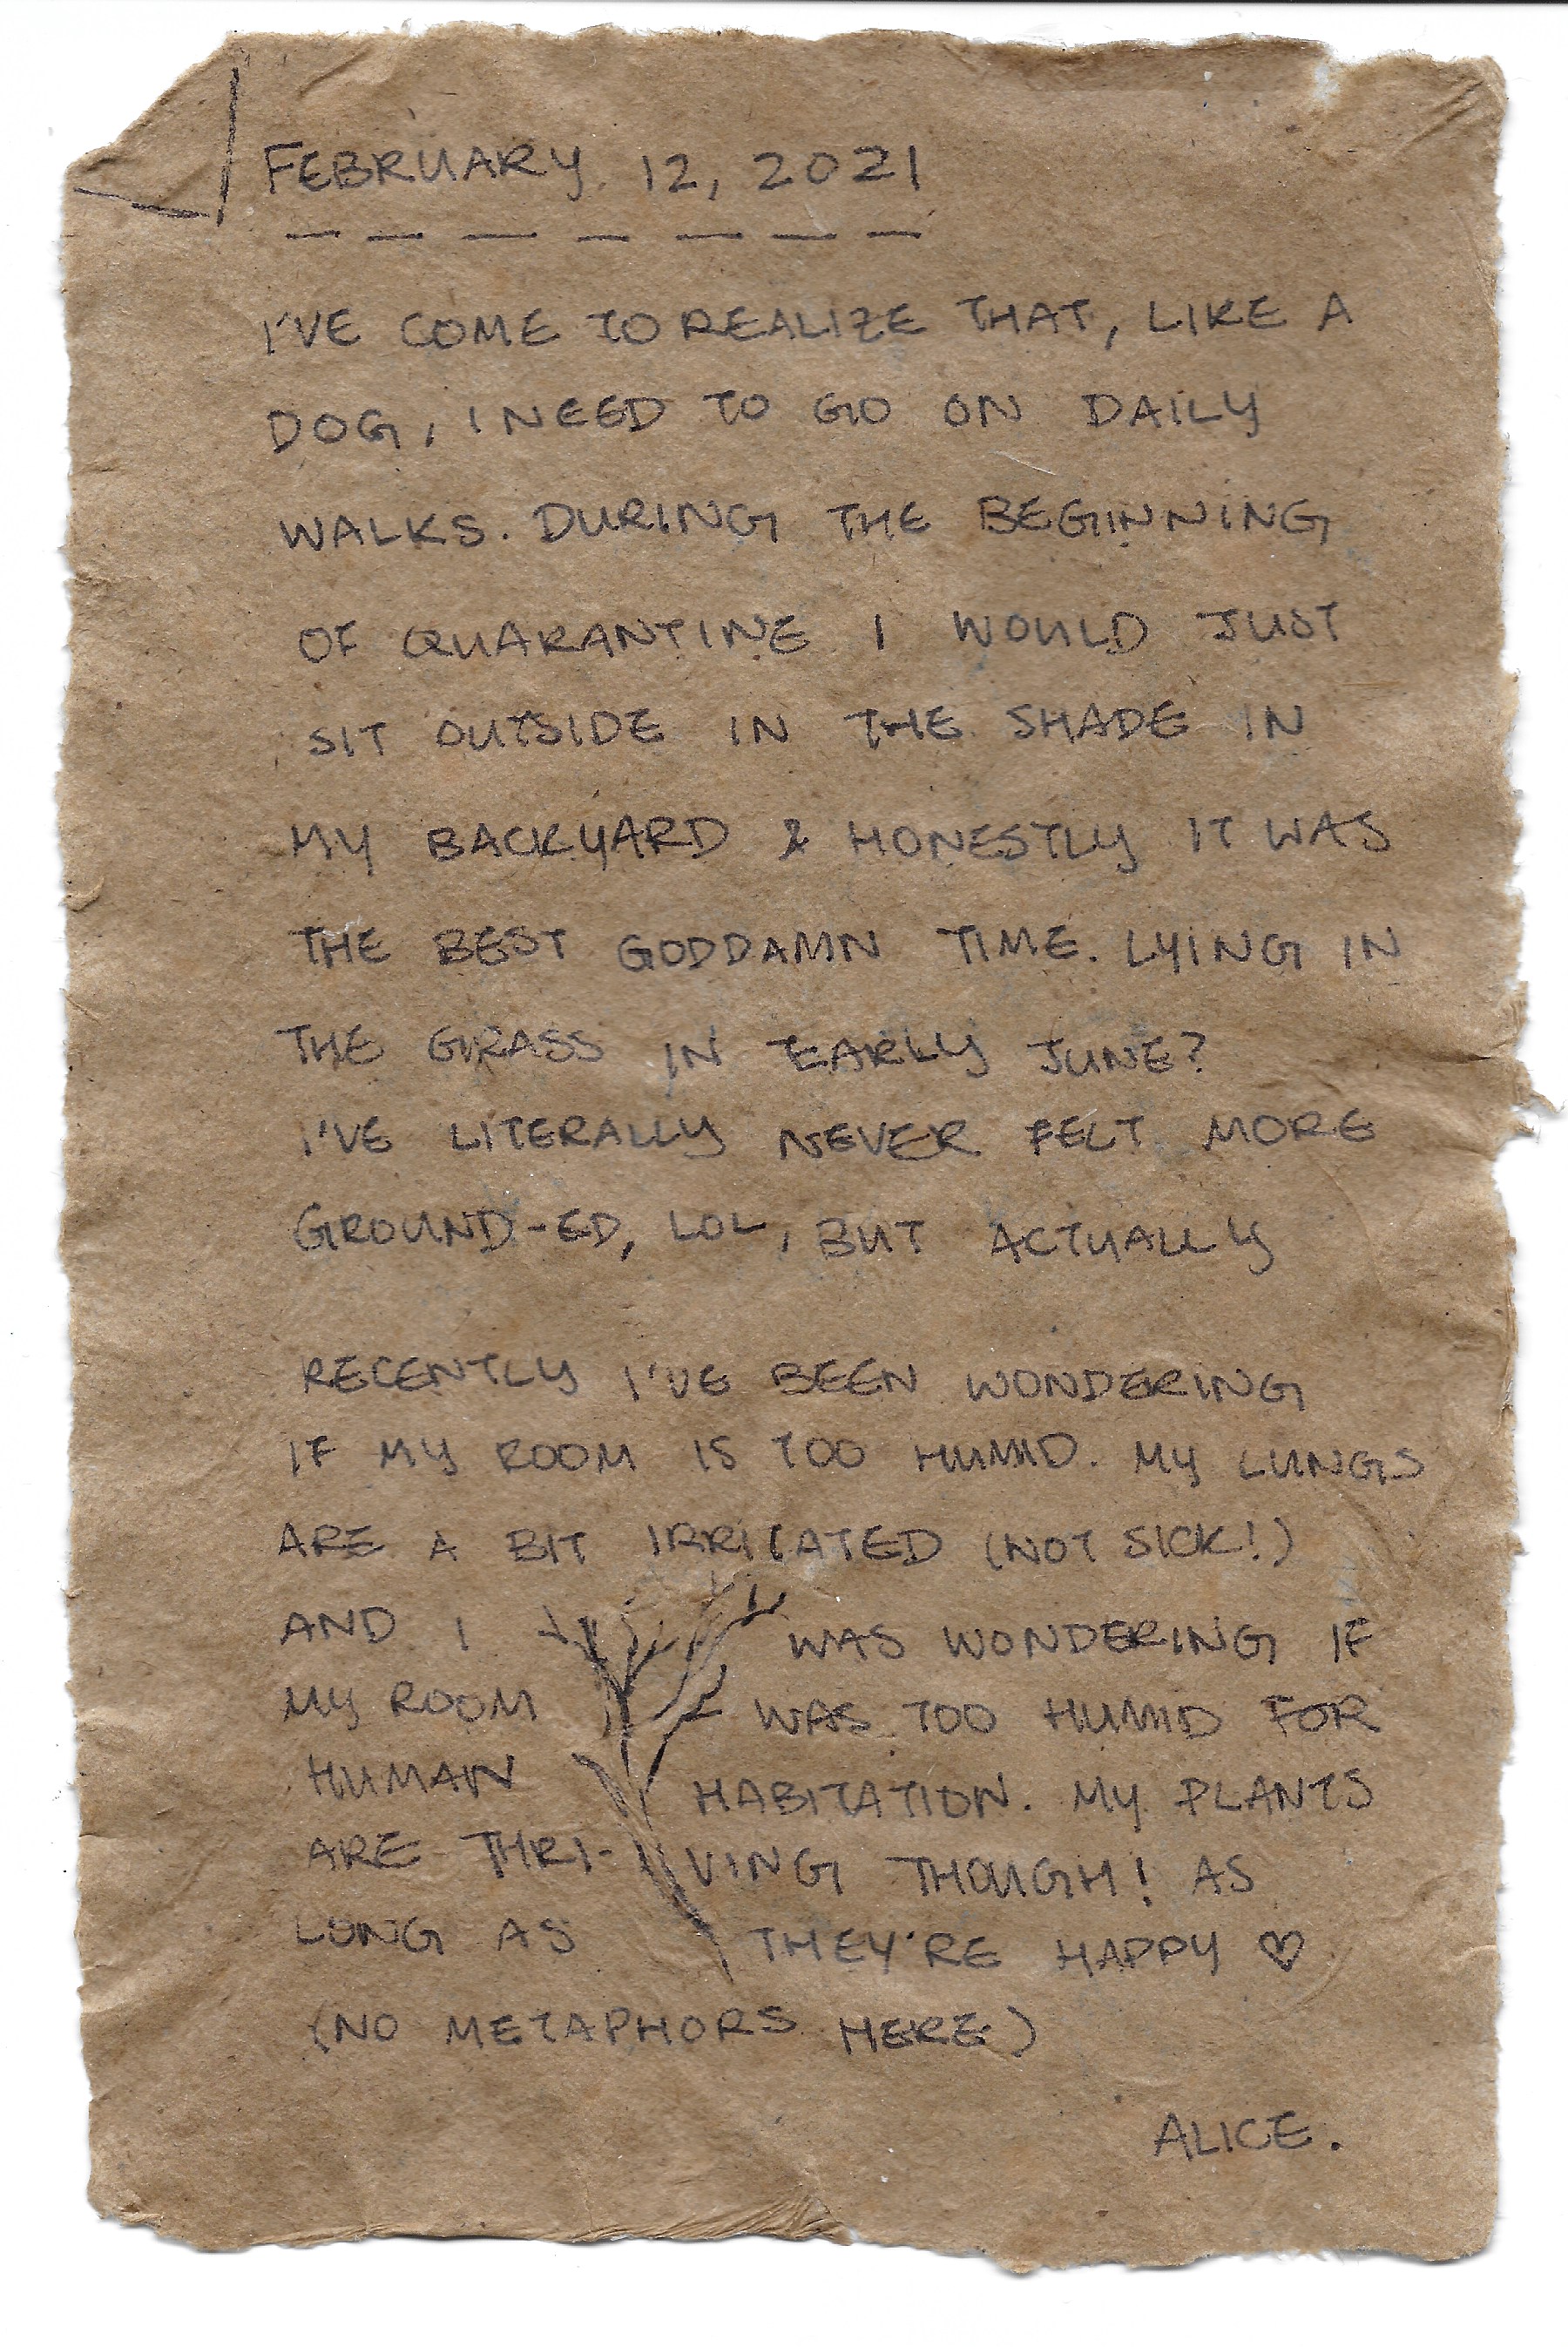 FEBRUARY. 12, 2021
I'VE COME TO REALIZE THAT, LIKE A
DOG, I NEED TO GO ON DAILY
WALKS. DURING THE BEGINNING
OF QUARANTINE I WOULD JUST
SIT OUTSIDE IN THE SHADE IN
MY BACKYARD & HONESTLY IT WAS
THE BEST GODDAMN TIME. LYING IN
THE GRASS IN EARLY JUNE?
I'VE LITERALLY NEVER FELT MORE
GROUND-ED, LOL, BUT ACTUALLY
RECENTLY I'VE BEEN WONDERING
IF MY ROOM IS TOO HUMID. MY LUNGS
ARE A BIT IRRITATED (NOT SICK!)
AND I WAS WONDERING IF
MY ROOM WAS TOO HUMID FOR
HUMAN HABITATION. MY PLANTS
ARE THRI-VING THOUGH! AS
LONG AS THEY'RE HAPPY ♡
(NO METAPHORS HERE)
ALICE.